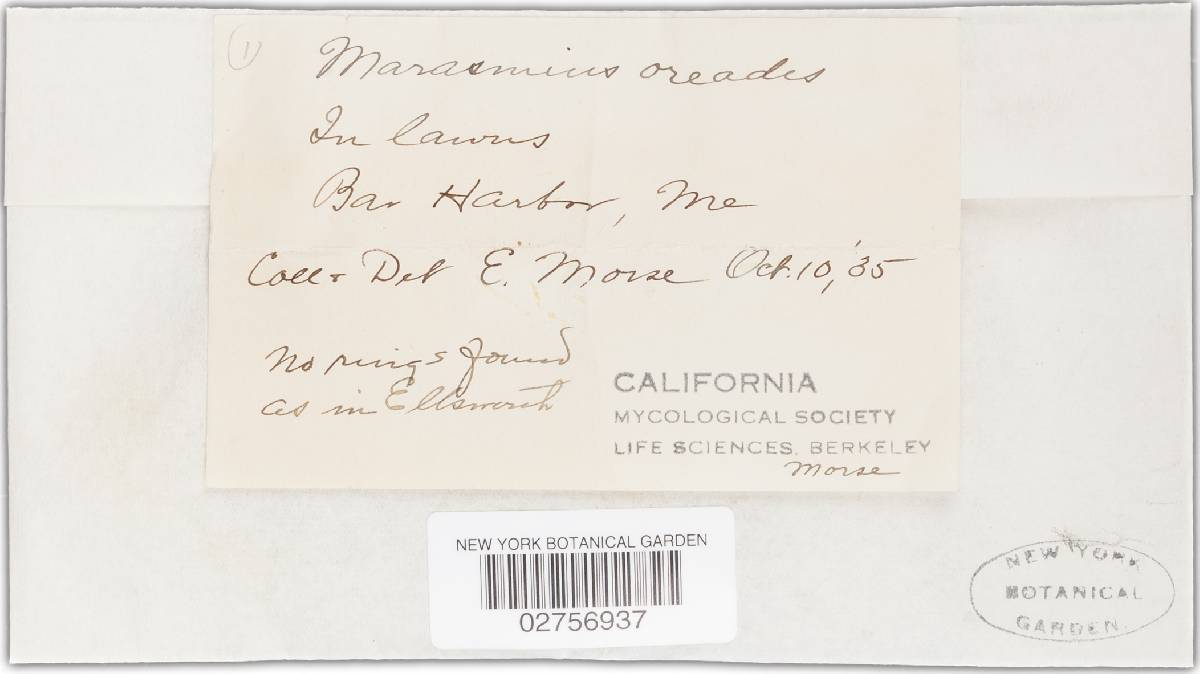 1
Marasmius oreades
In lawns
Bar Harbor, Me
Coll + Det E. Morse Oct. 10, '35
No rings found
as in Ellsworth
CALIFORNIA
MYCOLOGICAL SOCIETY
LIFE SCIENCES, BERKELEY
Morse
NEW YORK BOTANICAL GARDEN
02756937
NEW YORK
BOTANICAL
GARDEN